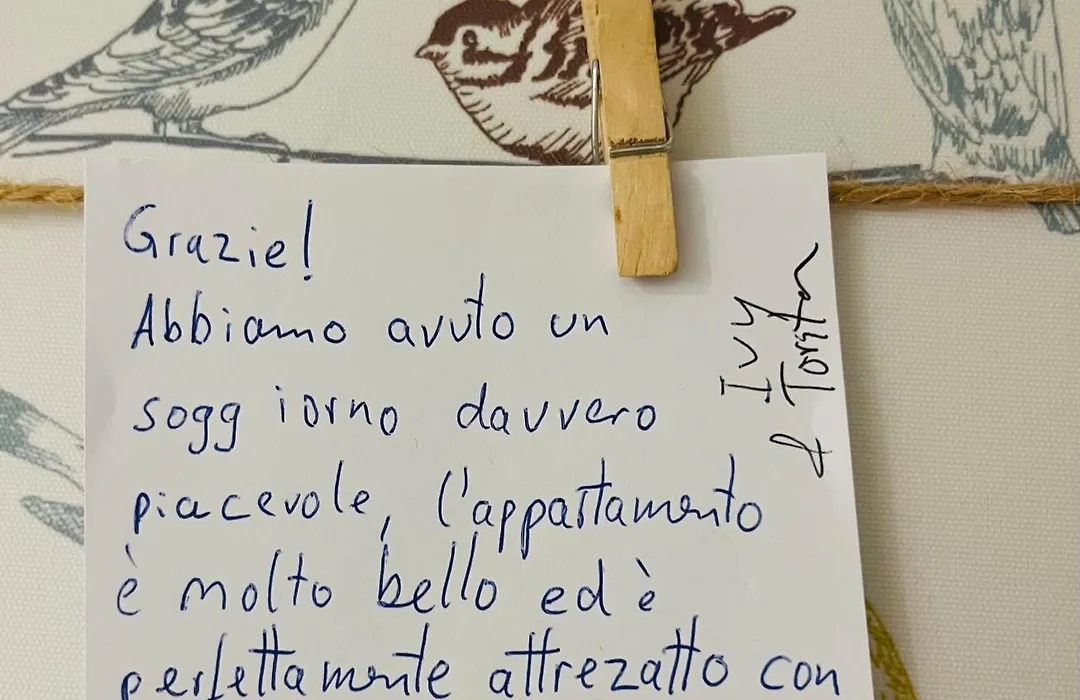 Grazie!
Abbiamo avuto un
soggiorno davvero
piacevole, l'appartamento
è molto bello ed è
perfettamente attrezatto con
Ivy
&